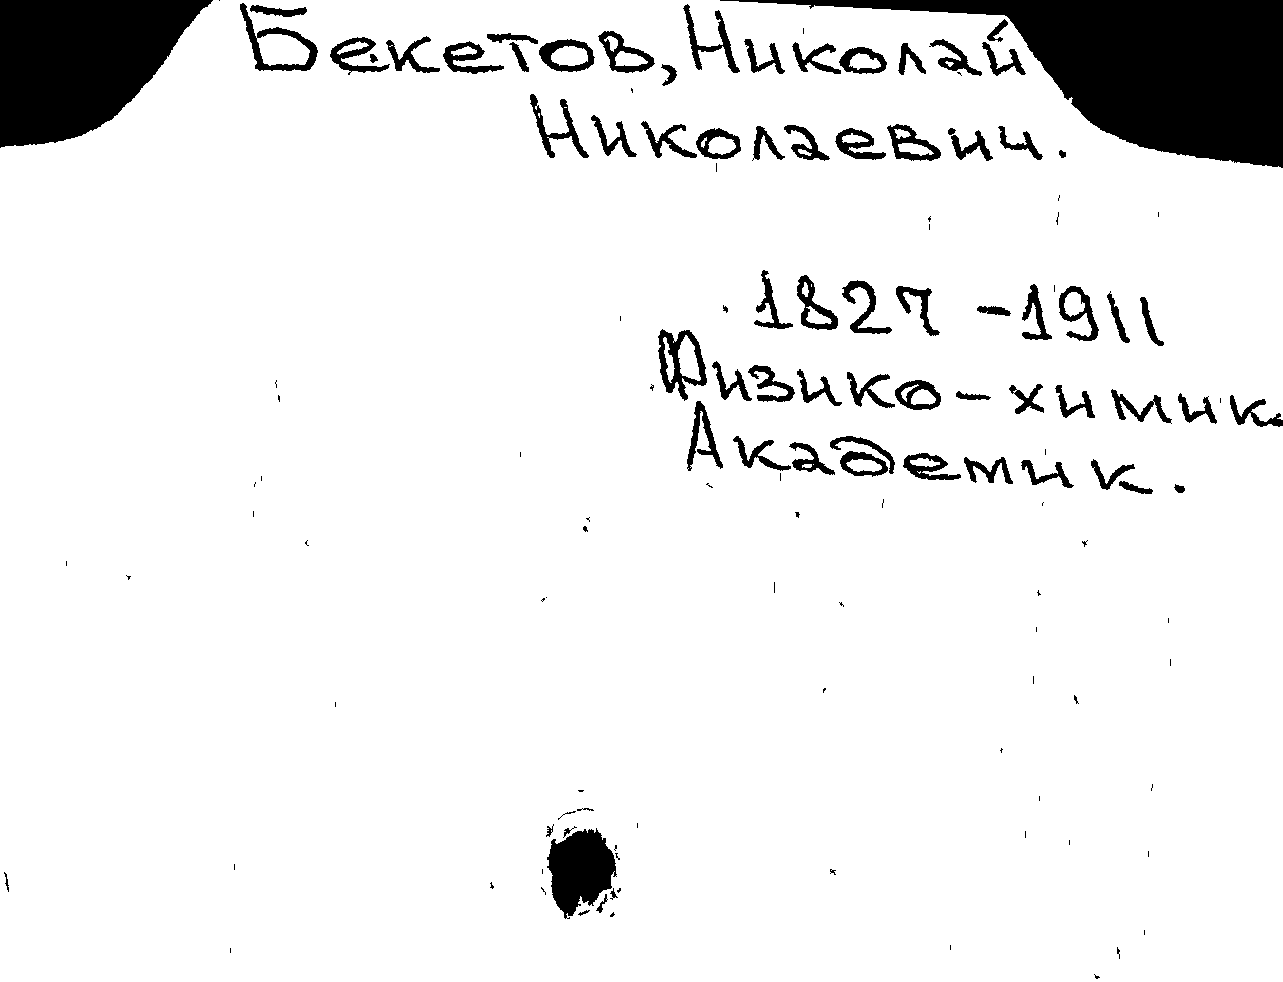 Бекетов, Николай
Николаевич.
1827-1911
Физико-химик.
Академик.